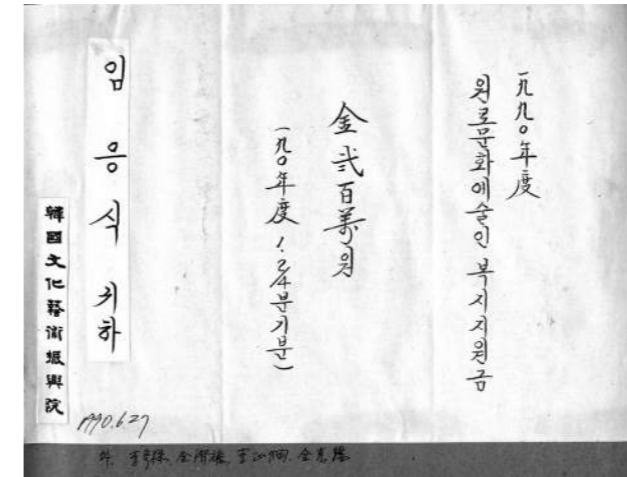 一九九○年度
원로문화예술인 복지지원금
金 弐百萬원
一九九○年度 1. 2/4분기분)
임응식 귀하
韓國文化藝術振興院
1990.6.27